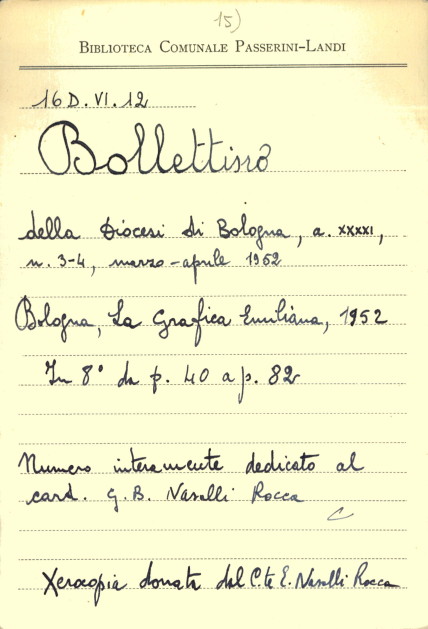 15)
BIBLIOTECA COMUNALE PASSERINI-LANDI
16 D. VI. 12
Bollettino
della Diocesi di Bologna, a. XXXXI,
n. 3-4, marzo-aprile 1952
Bologna, La Grafica Emiliana, 1952
In 8° da p. 40 a p. 82
Numero interamente dedicato al
card. G. B. Nasalli Rocca
C
Xerocopia donata dal C.te E. Nasalli Rocca